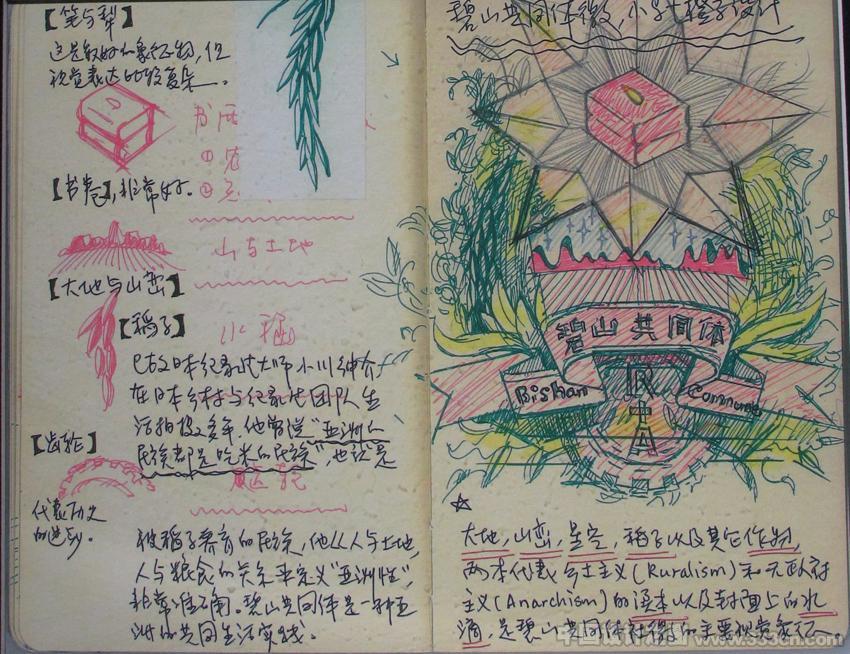 【笔与犁】
这是较好的象征物，但
视觉表达比较复杂。
书
①农
②
【书卷】，非常好。
山与土地
【大地与山峦】
【稻子】
水稻
已故日本纪录片大师小川绅介
在日本乡村与纪录片团队生
活拍摄多年，他曾说“亚洲的
民族都是吃米的民族”，也就是
【齿轮】
代表历史
的进步。
被稻子养育的民族，他从人与土地，
人与粮食的关系来定义“亚洲性”，
非常准确。碧山共同体是一种亚
洲的共同生活实践。
碧山共同体徽，小样稿子设计
碧山共同体
Bishan
Commune
大地，山峦，星空，稻子以及其它作物，
两本代表乡土主义（Ruralism）和无政府
主义（Anarchism）的读本以及封面上的水
滴，是碧山共同体社徽的主要视觉象征
www.333cn.com